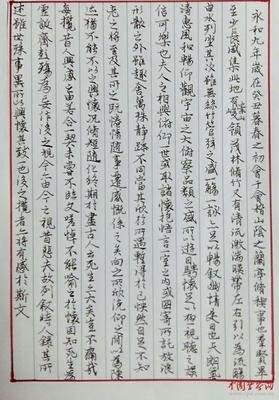 永和九年歲在癸丑暮春之初會于會稽山陰之蘭亭脩禊事也羣賢畢
至少長咸集此地有崇山峻領茂林脩竹又有清流激湍暎帶左右引以為流觴
曲水列坐其次雖無絲竹管弦之盛一觴一詠亦足以暢敘幽情是日也天朗氣
清惠風和暢仰觀宇宙之大俯察品類之盛所以遊目騁懷足以極視聽之娛
信可樂也夫人之相與俯仰一世或取諸懷抱悟言一室之內或因寄所託放浪
形骸之外雖趣舍萬殊靜躁不同當其欣於所遇暫得於己怏然自足不知
老之將至及其所之既惓情隨事遷感慨係之矣向之所欣俛仰之間以為陳
迹猶不能不以之興懷況脩短隨化終期於盡古人云死生亦大矣豈不痛哉
每攬昔人興感之由若合一契未嘗不臨文嗟悼不能喻之於懷固知一死生為
虛誕齊彭殤為妄作後之視今亦由今之視昔悲夫故列敘時人錄其所
述雖世殊事異所以興懷其致一也後之攬者亦將有感於斯文